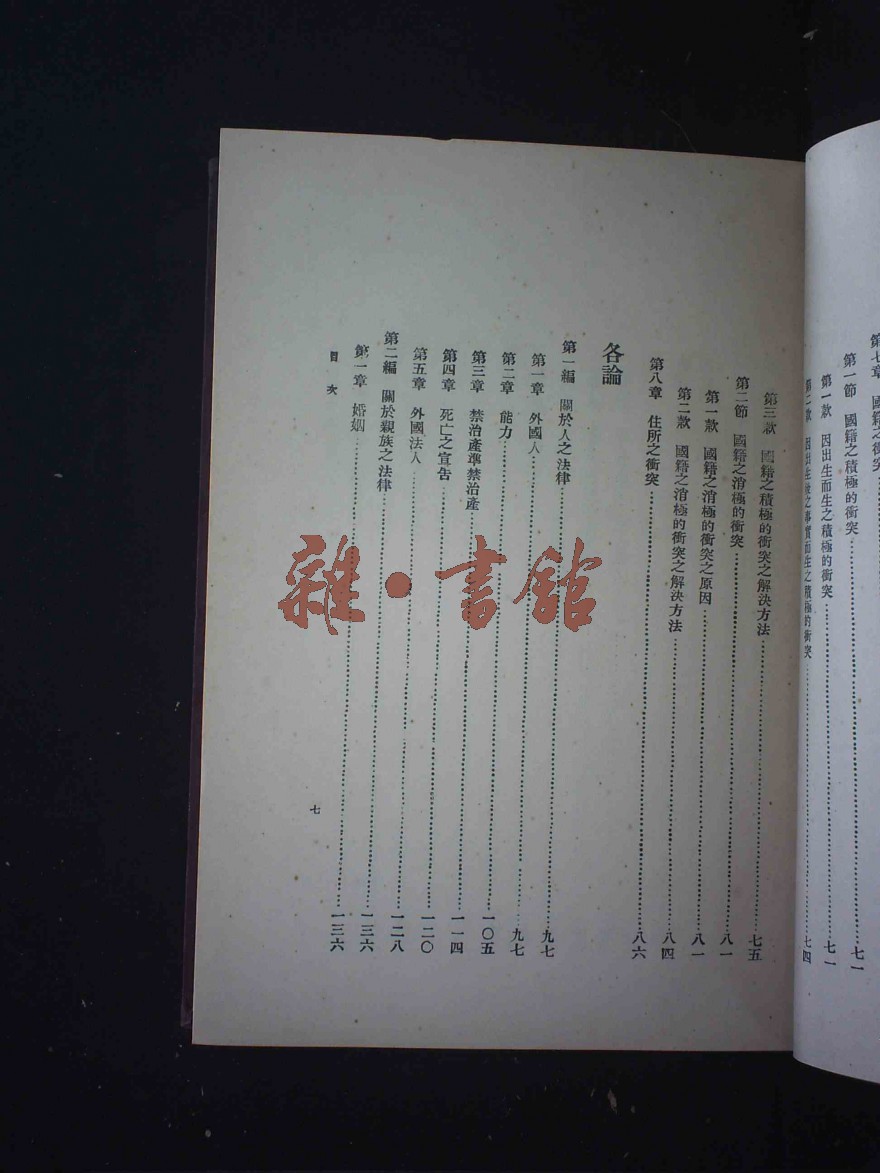 第七章 國籍之衝突
第一節 國籍之積極的衝突……七一
第一款 因出生而生之積極的衝突……七一
第二款 因出生後之事實而生之積極的衝突……七四
第三款 國籍之積極的衝突之解決方法……七五
第二節 國籍之消極的衝突……八一
第一款 國籍之消極的衝突之原因……八一
第二款 國籍之消極的衝突之解決方法……八四
第八章 住所之衝突……八六
各論
第一編 關於人之法律……九七
第一章 外國人……九七
第二章 能力……一〇五
第三章 禁治產準禁治產……一一四
第四章 死亡之宣告……一二〇
第五章 外國法人……一二八
第二編 關於親族之法律……一三六
第一章 婚姻……一三六
目次
七
雜·書館